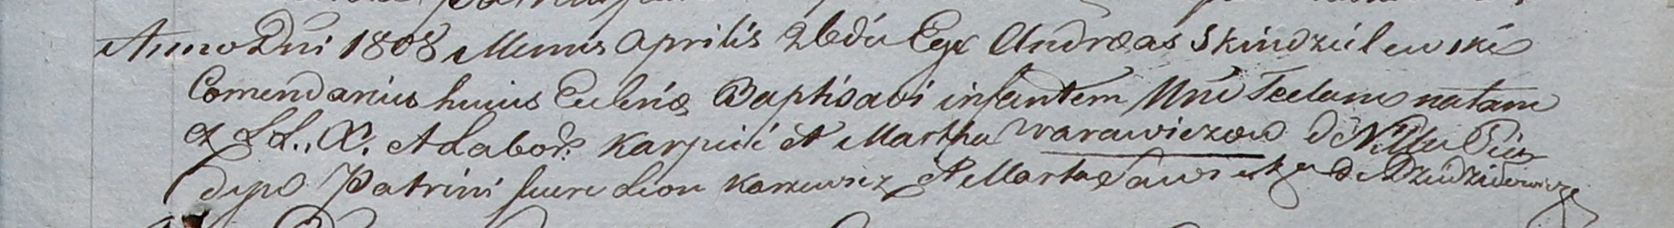 Anno Dni 1808 Mensis Aprilis 26 die Ego Andreas Skindzielewski
Comendarius huius Eccleńae Baptisavi infantem Nne Teclam natam
LL. A Labor. Karpiei et Martha Warawiczow de Villa
Patrini fuere Leon Karzewicz et Marta Sawicka de Dziedziulewicze